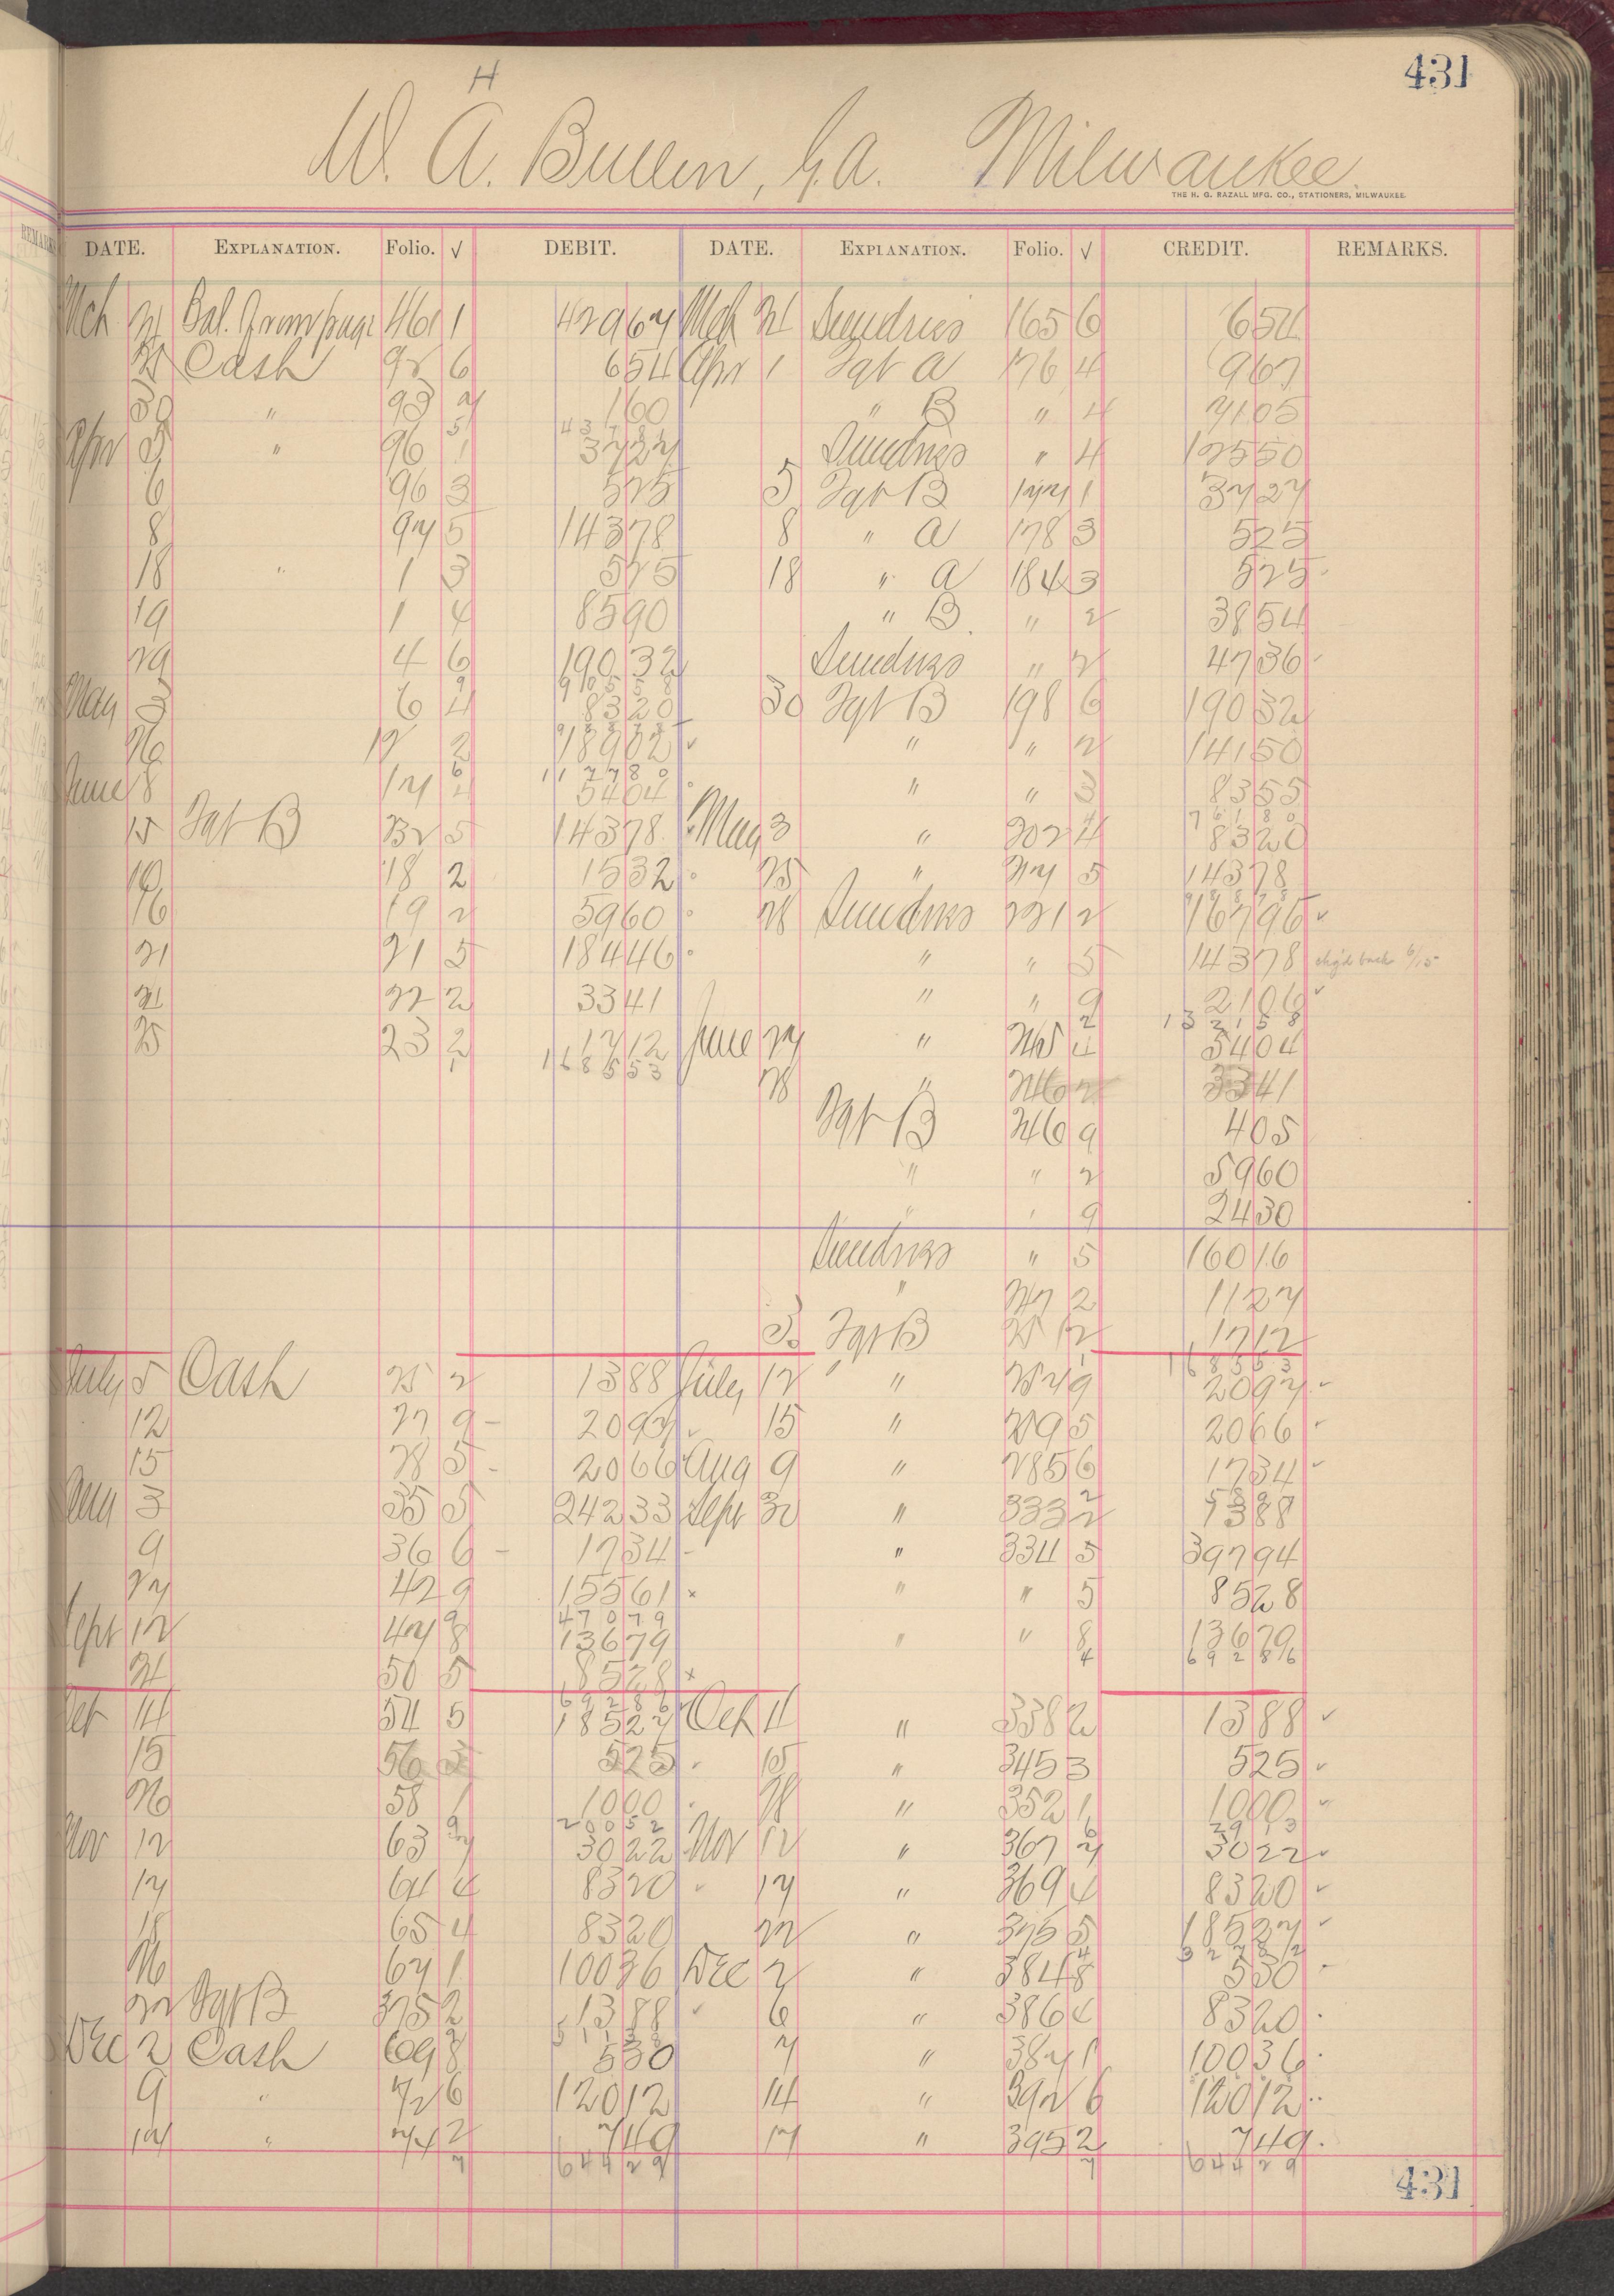 431
H
W. A. Bullen, G.A. Milwaukee.
THE H. G. RAZALL MFG. CO., STATIONERS, MILWAUKEE.
DATE. EXPLANATION. Folio. √ DEBIT. DATE. EXPLANATION. Folio. √ CREDIT. REMARKS.
Mch 21 Bal. from page 461 1 42967 Mch 21 Sundries 165 6 654
Cash 92 6 654 Apr 1 Fgt A 176 4 967
30 " 93 7 160 " B " 4 7105
5 43781
Apr 5 " 96 1 3727 Sundries " 4 12550
6 96 3 525 5 Fgt B 177 1 3727
8 97 5 14378 8 " A 178 3 525
18 " 1 3 525 18 " A 184 3 525
19 1 4 8590 " B " 2 3854
29 4 6 19032 Sundries " 2 4736
9 910558
May 3 6 4 8320 30 Fgt B 198 6 19032
26 12 2 18902 " " 2 14150
6 117780
June 8 17 4 5404 " " 3 8355
4 76180
15 Fgt B 232 5 14378 May 3 " 202 4 8320
10 18 2 1532 25 " 217 5 14378
16 19 2 5960 28 Sundries 221 2 16795
21 21 5 18446 " " 5 14378 chg'd back 6/15
21 22 2 3341 " " 9 2106
2 132158
25 23 2 1712 June 27 " 245 4 5404
1 168553
28 " 246 2 3341
Fgt B 246 9 405
" " 2 5960
" " 9 2430
Sundries " 5 16016
" 247 2 1127
30 Fgt B 25 2 1712
1 168553
July 5 Cash 25 2 1388 July 12 " 9 2097
12 27 9 2097 15 " 5 2066
15 28 5 2066 Aug 9 " 285 6 1734
2
Aug 3 35 5 24233 Sept 30 " 333 2 1388
9 36 6 1734 " 334 5 39794
27 42 9 15561 " " 5 8528
9 47079
Sept 12 47 8 13679 " " 8 13679
4 69286
21 50 5 8528
69286
Oct 14 54 5 18527 Oct 4 " 338 2 1388
15 56 3 525 15 " 345 3 525
26 58 1 1000 28 " 352 1 1000
9 20052 6 2913
Nov 12 63 7 3022 Nov 12 " 367 7 3022
17 64 4 8320 17 " 369 4 8320
18 65 4 8320 22 " 375 5 18527
4 32782
26 67 1 10036 Dec 2 " 384 8 530
22 Fgt B 375 2 1388 6 " 386 4 8320
2 51138
Dec 2 Cash 69 8 530 7 " 387 1 10036
9 " 72 6 12012 14 " 392 6 12012
17 " 74 2 749 17 " 395 2 749
7 64429 7 64429
431